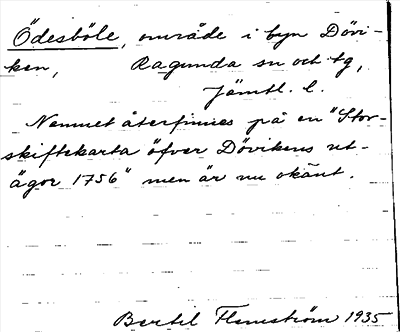 Ödesböle, område i byn Dövi-
ken, Ragunda sn och tg,
Jämtl. l.
Namnet återfinnes på en "Stor-
skiftskarta öfver Dövikens ut-
ägor 1756" men är nu okänt.
Bertil Flemström 1935